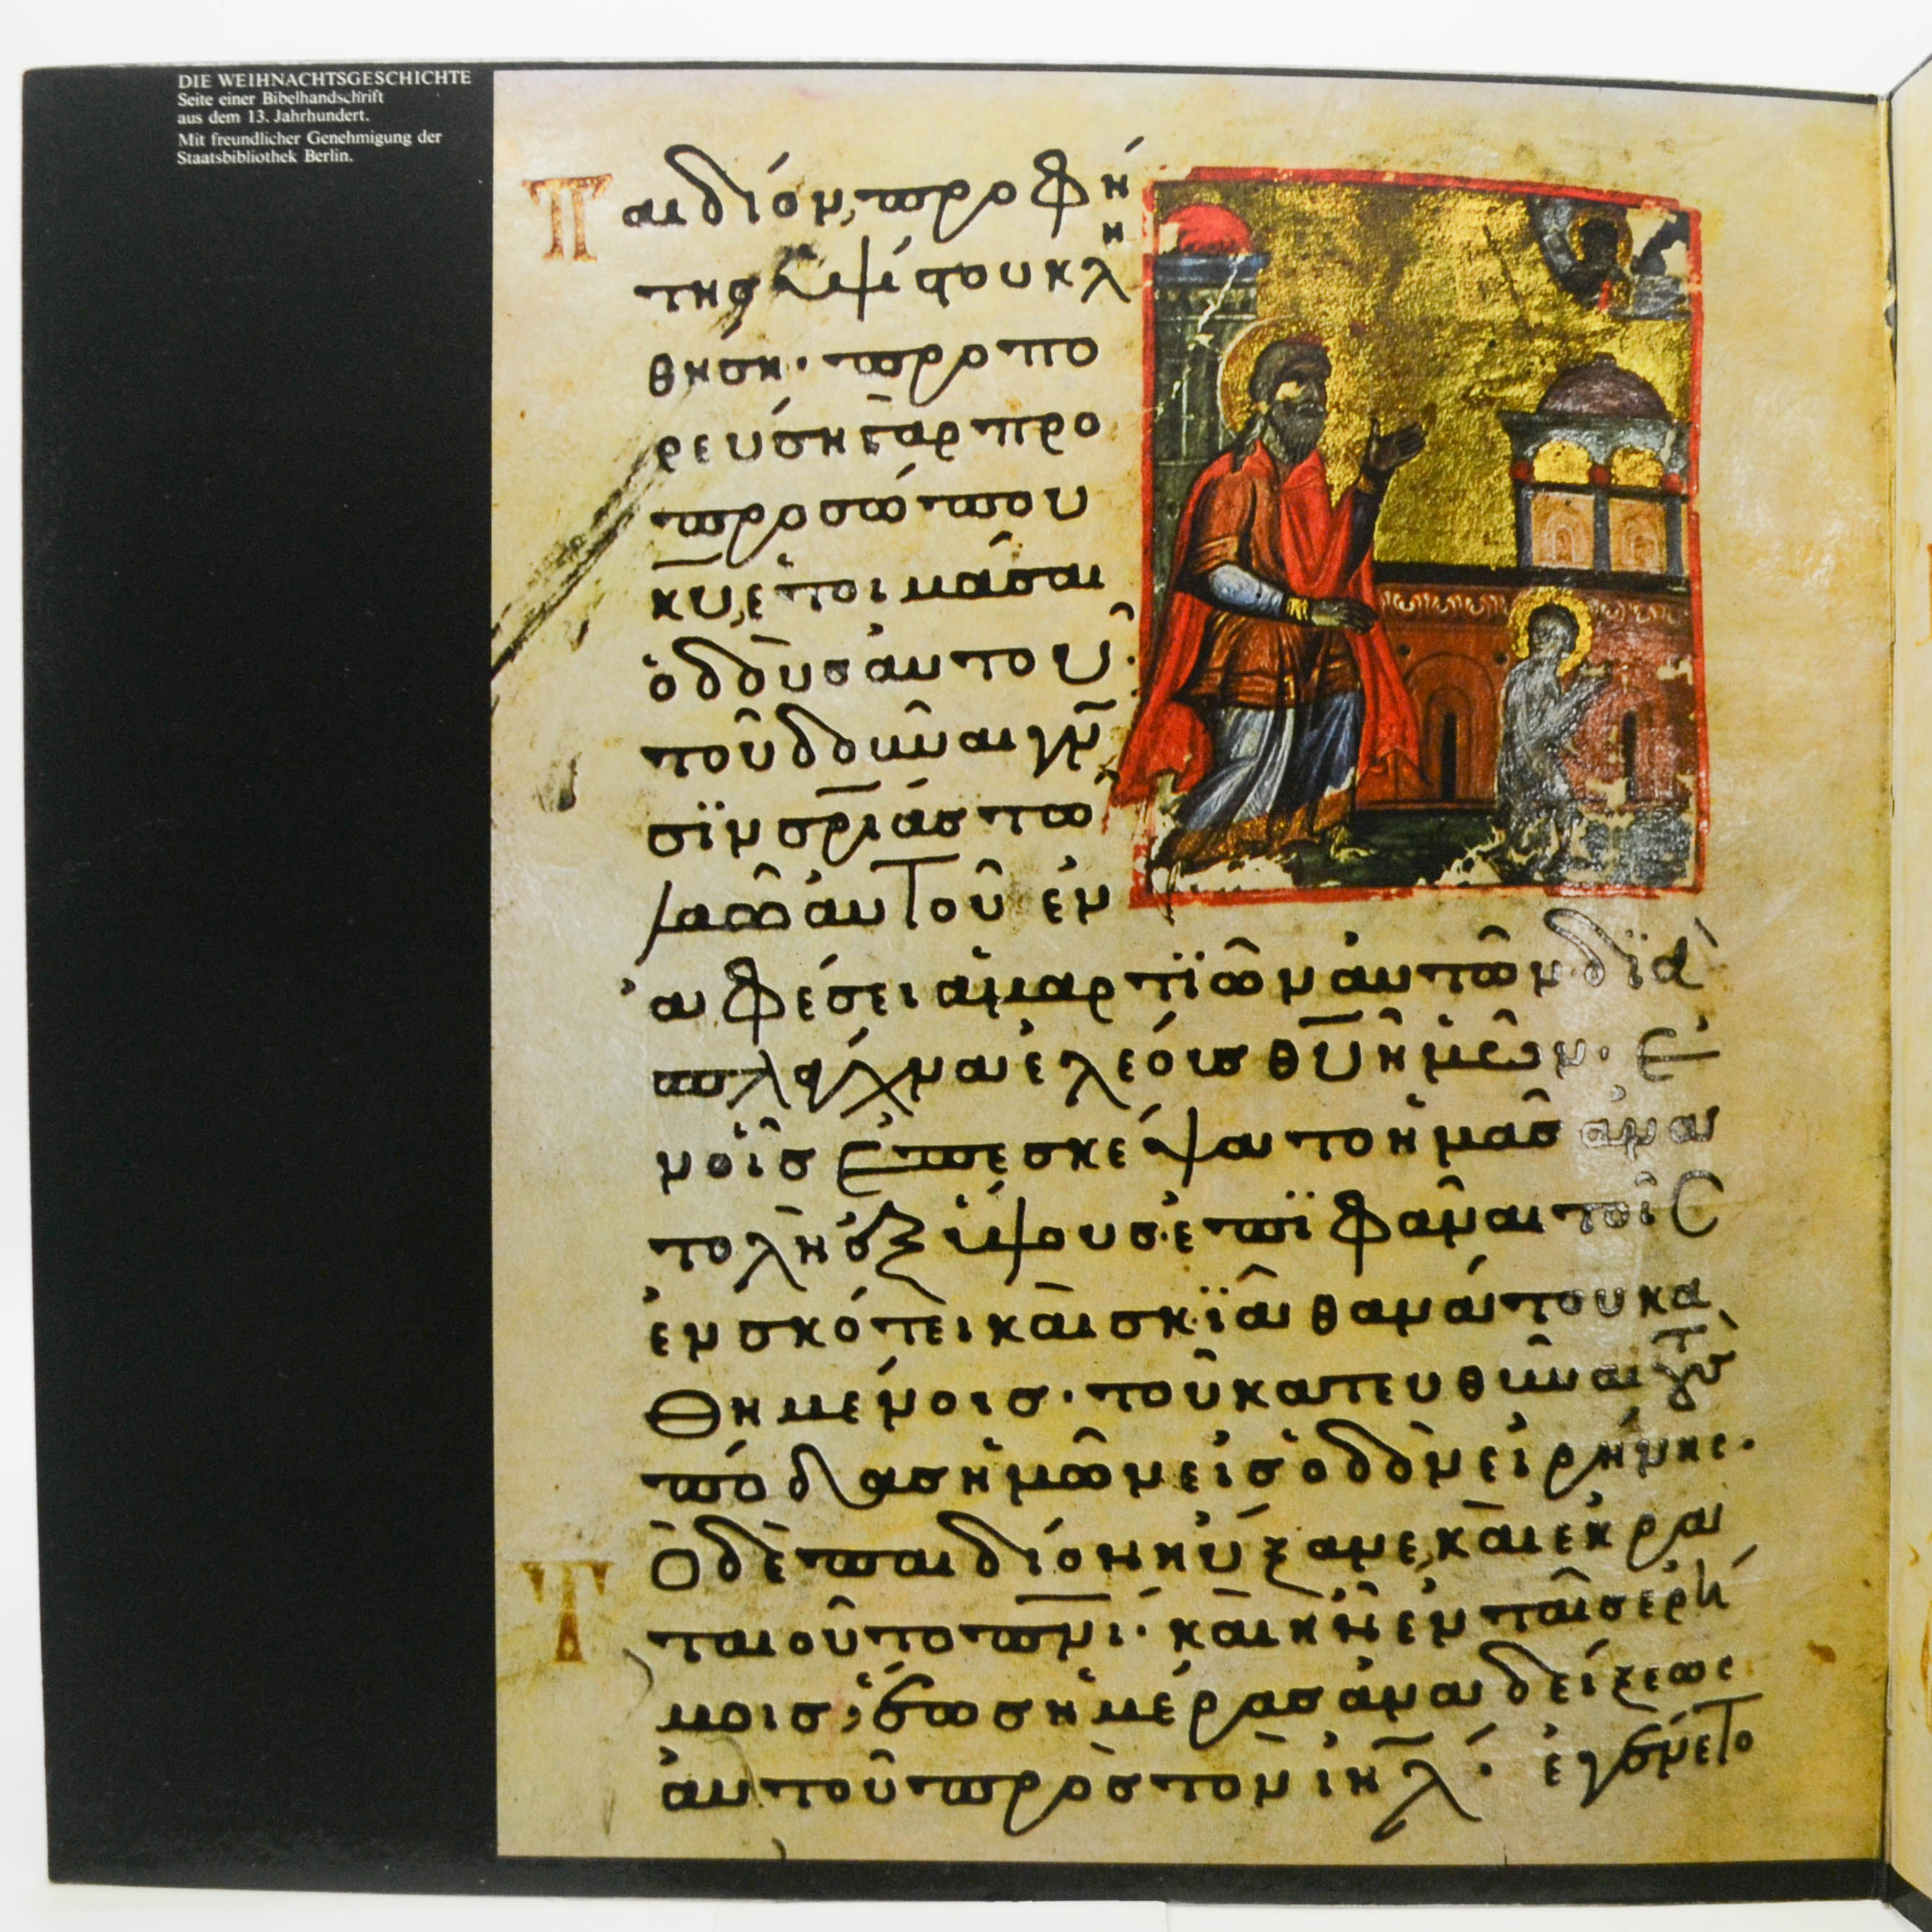 DIE WEIHNACHTSGESCHICHTE
Seite einer Bibelhandschrift
aus dem 13. Jahrhundert.
Mit freundlicher Genehmigung der
Staatsbibliothek Berlin.
Παιδίον, προφή
της ὑψίστου κλη
θήση· προπο
ρεύση γὰρ πρὸ
προσώπου
κ̅υ̅, ἑτοιμάσαι
ὁδοὺς αὐτοῦ·
τοῦ δοῦναι γνῶ
σϊν σ̅ρ̅ι̅ας τῶ
λαῶ αὐτοῦ ἐν
ἀφέσει ἁμαρτϊῶν αὐτῶν· δϊὰ
σπλάγχνα ἐλέους θ̅υ̅ ἡμῶν· ἐ
ν οἷς ἐπεσκέψατο ἡμᾶς ἀνα
τολὴ ἐξ ὕψους· ἐπϊφᾶναι τοῖς
ἐν σκότει καὶ σκϊᾶ θανάτου κα
θημένοις· τοῦ κατευθῦναι τοὺς
πόδας ἡμῶν εἰς ὁδὸν εἰρήνης.
Τὸ δὲ παιδίον ηὔξανε, καὶ ἐκρα
ταιοῦτο π̅ν̅ι̅· καὶ ἦν ἐν ταῖς ἐρή
μοις, ἕως ἡμέρας ἀναδείξεως
αὐτοῦ πρὸς τὸν ἰ̅η̅λ̅· ἐγένετο